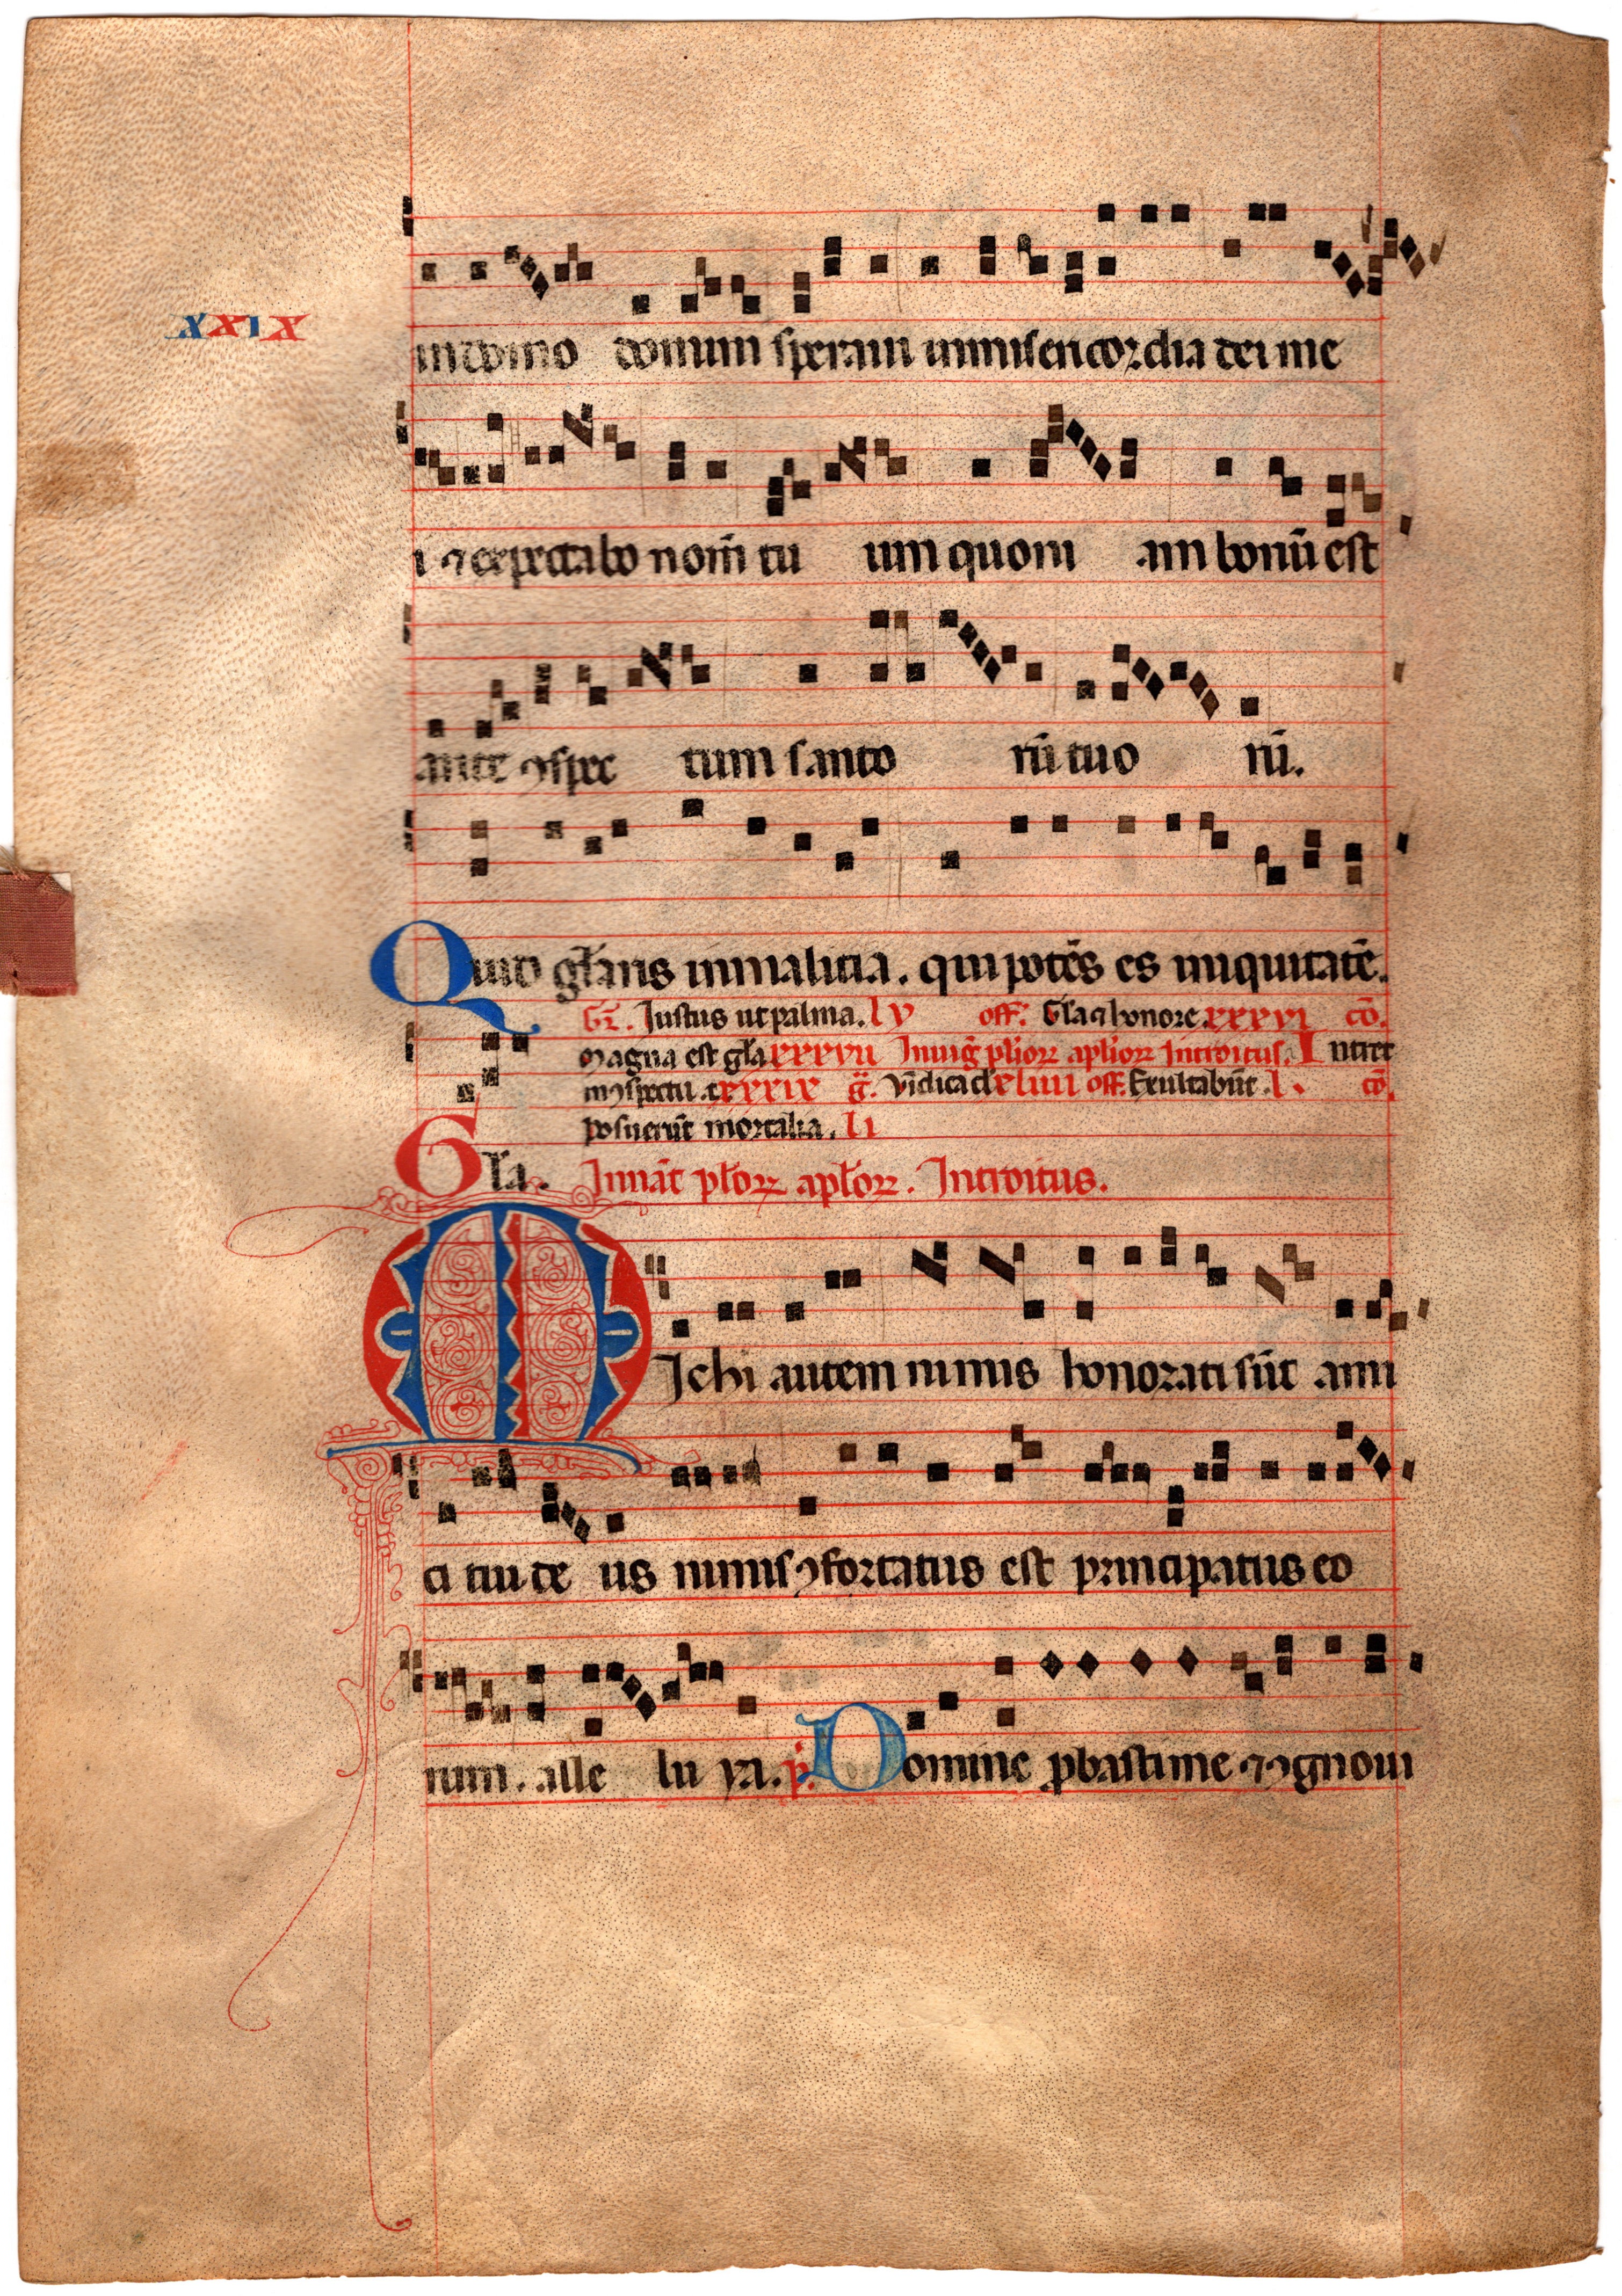 XXIX
in domo domini speraui in misericordia dei me
i ⁊ expectabo nom̄ tu um quoni am bonū est
ante ꝯspec tum sancto rū tuo rū.
Quid gl̄aris in malicia. qui potēs es iniquitatē.
Gr̄. Justus ut palma. lv off̄. Gl̄a ⁊ honore. xxxxvi cō.
Magna est gl̄a xxxxvii In uiḡ pl̄ioꝝ apl̄ioꝝ Introitus. Intret
in ꝯspectu. cxxxix ḡ. Vīdica d̄ xliiii off̄. Exultabūt. l. cō.
posuerūt mortalia. li
Gl̄a. In nat̄ pl̄oꝝ apl̄oꝝ. Introitus.
Michi autem nimis honorati sūt ami
ci tui de us nimis ꝯfortatus est principatus eo
rum. alle lu ya. p̄. Domine ꝓbasti me ⁊ ꝯgnoui